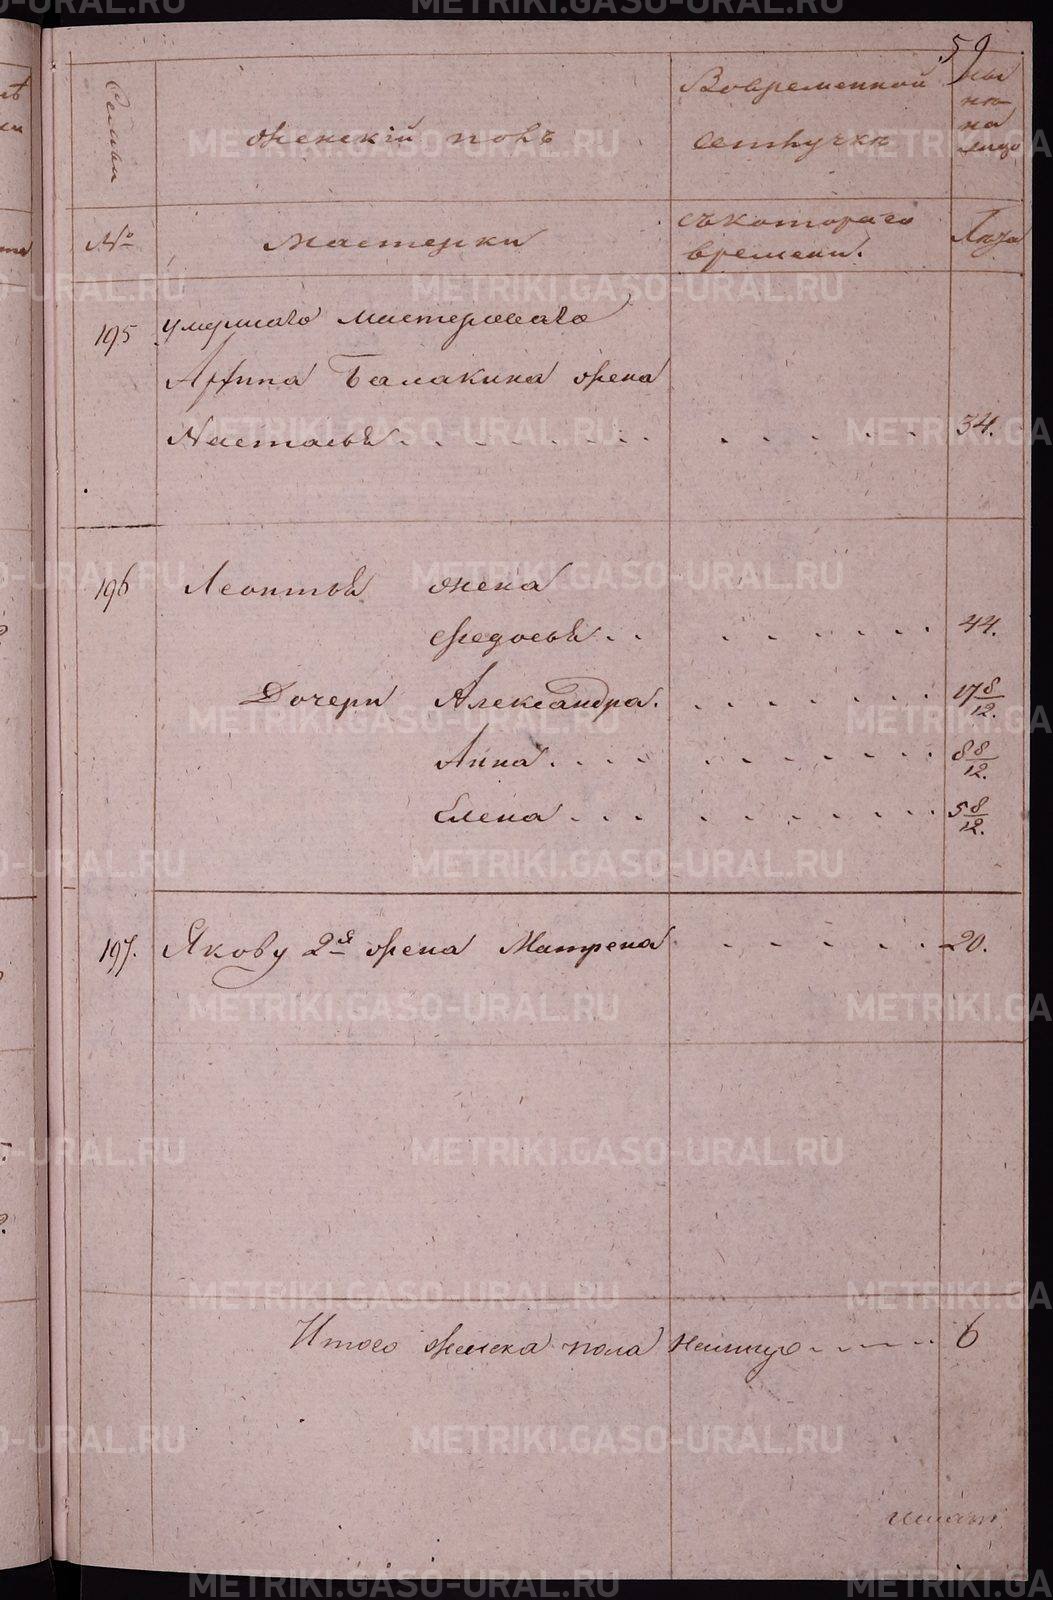 59
Семьи
женскій полъ
Вовременной
отлучкѣ
ны
нѣ
на
лицо
№
мастерки
съкотораго
времени.
Лѣта
195
умершаго мастероваго
Архипа Балакина жена
Настасья
34.
196
Леонтья жена
Федосья
44.
Дочери Александра.
17 8/12.
Анна
8 8/12.
Елена
5 8/12.
197.
Якову 2я жена Матрена
20.
Итого женска пола налицо
6
METRIKI.GASO-URAL.RU